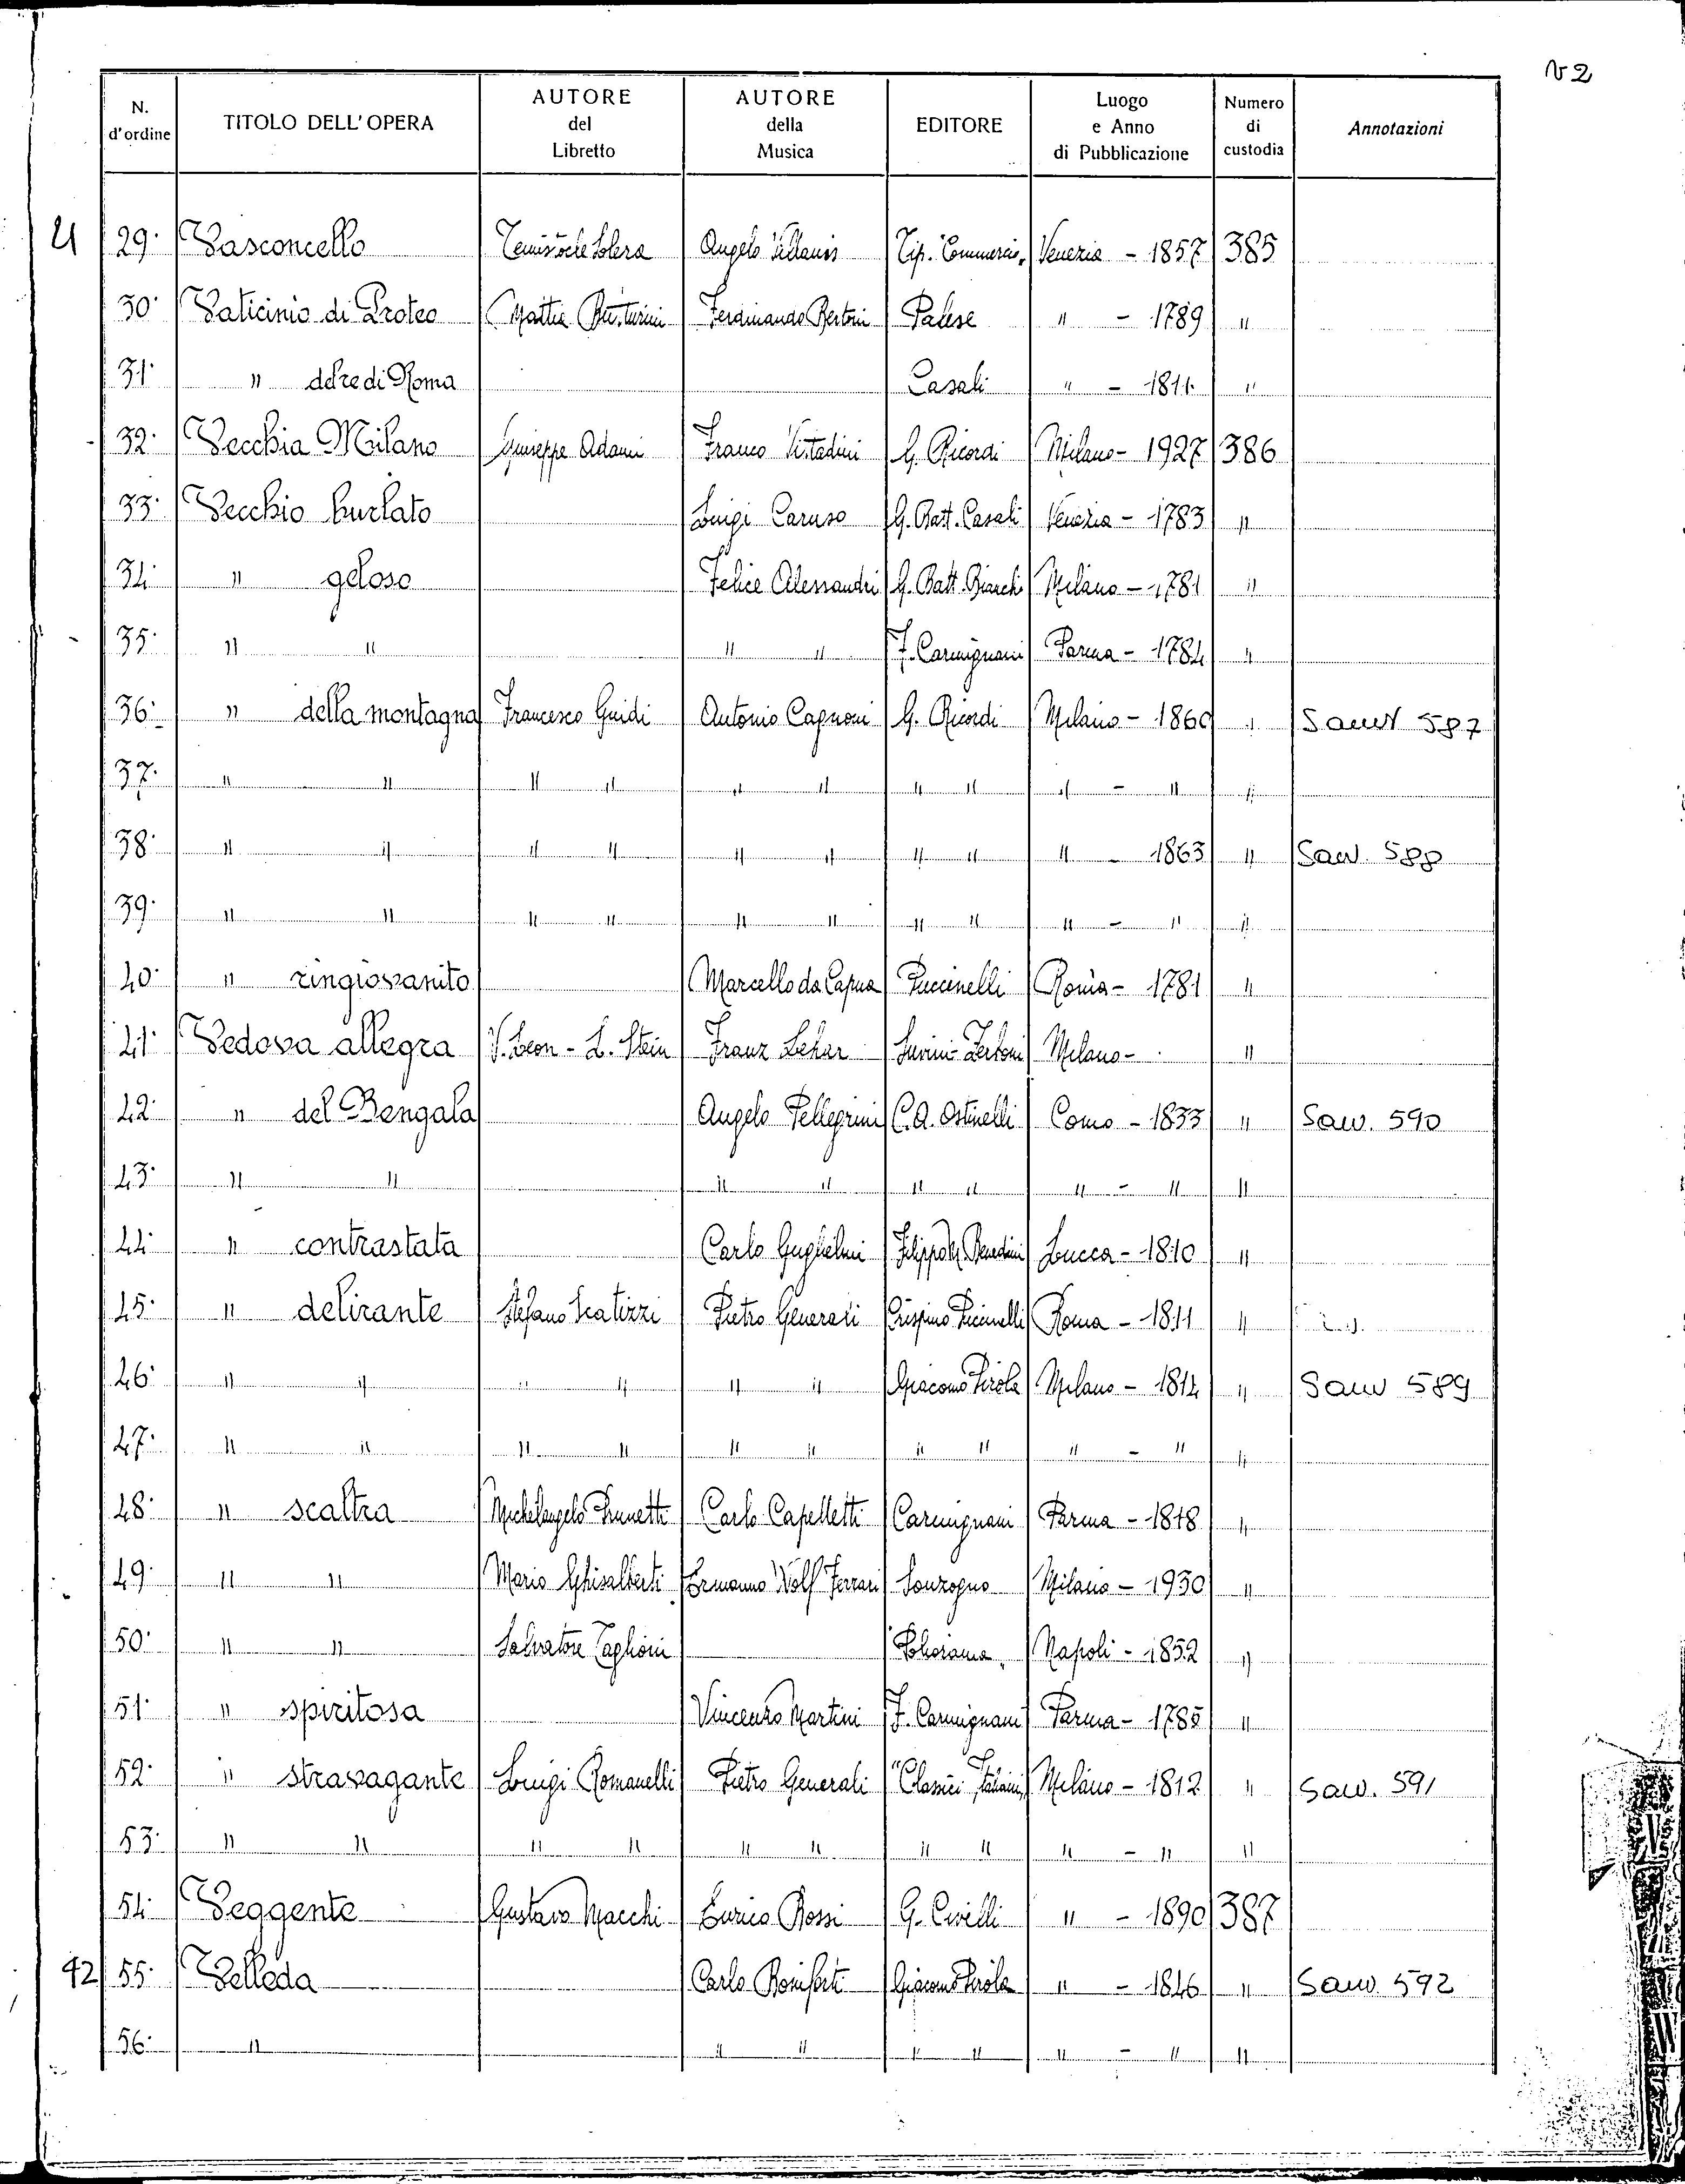 V2
N. d'ordine | TITOLO DELL'OPERA | AUTORE del Libretto | AUTORE della Musica | EDITORE | Luogo e Anno di Pubblicazione | Numero di custodia | Annotazioni
29. Vasconcello | Temistocle Solera | Angelo Villanis | Tip. Commercio | Venezia - 1857 | 385
30. Vaticinio di Proteo | Mattia Butturini | Ferdinando Bertoni | Palese | " - 1789 | "
31. " del re di Roma | Casali | " - 1811 | "
32. Vecchia Milano | Giuseppe Adami | Franco Vittadini | G. Ricordi | Milano - 1927 | 386
33. Vecchio burlato | Luigi Caruso | G. Batt. Casali | Venezia - 1783 | "
34. " geloso | Felice Alessandri | G. Batt. Bianchi | Milano - 1781 | "
35. " " | " " | F. Carmignani | Parma - 1784 | "
36. " della montagna | Francesco Guidi | Antonio Cagnoni | G. Ricordi | Milano - 1860 | " | 587
37. " " | " " | " " | " " | " - " | "
38. " " | " " | " " | " " | " - 1863 | " | Saw. 588
39. " " | " " | " " | " " | " - " | "
40. " ringiovanito | Marcello da Capua | Puccinelli | Roma - 1781 | "
41. Vedova allegra | V. Leon - L. Stein | Franz Lehar | Suvini Zerboni | Milano - | "
42. " del Bengala | Angelo Pellegrini | C. A. Ostinelli | Como - 1833 | " | Saw. 590
43. " " | " " | " " | " - " | "
44. " contrastata | Carlo Guglielmi | Filippo M. Benedini | Lucca - 1810 | "
45. " delirante | Stefano Scatizzi | Pietro Generali | Crispino Puccinelli | Roma - 1811 | "
46. " " | " " | " " | Giacomo Pirola | Milano - 1814 | " | Sauv 589
47. " " | " " | " " | " " | " - " | "
48. " scaltra | Michelangelo Prunetti | Carlo Capelletti | Carmignani | Parma - 1818 | "
49. " " | Mario Ghisalberti | Ermanno Wolf Ferrari | Sonzogno | Milano - 1930 | "
50. " " | Salvatore Taglioni | Napoli - 1852 | "
51. " spiritosa | Vincenzo Martini | F. Carmignani | Parma - 1785 | "
52. " stravagante | Luigi Romanelli | Pietro Generali | "Classici Italiani" | Milano - 1812 | " | Saw. 591
53. " " | " " | " " | " " | " - " | "
54. Veggente | Gustavo Macchi | Enrico Rossi | G. Civelli | " - 1890 | 387
42 55. Velleda | Carlo Boniforti | Giacomo Pirola | " - 1846 | " | Sauv 592
56. " | " " | " " | " - " | "